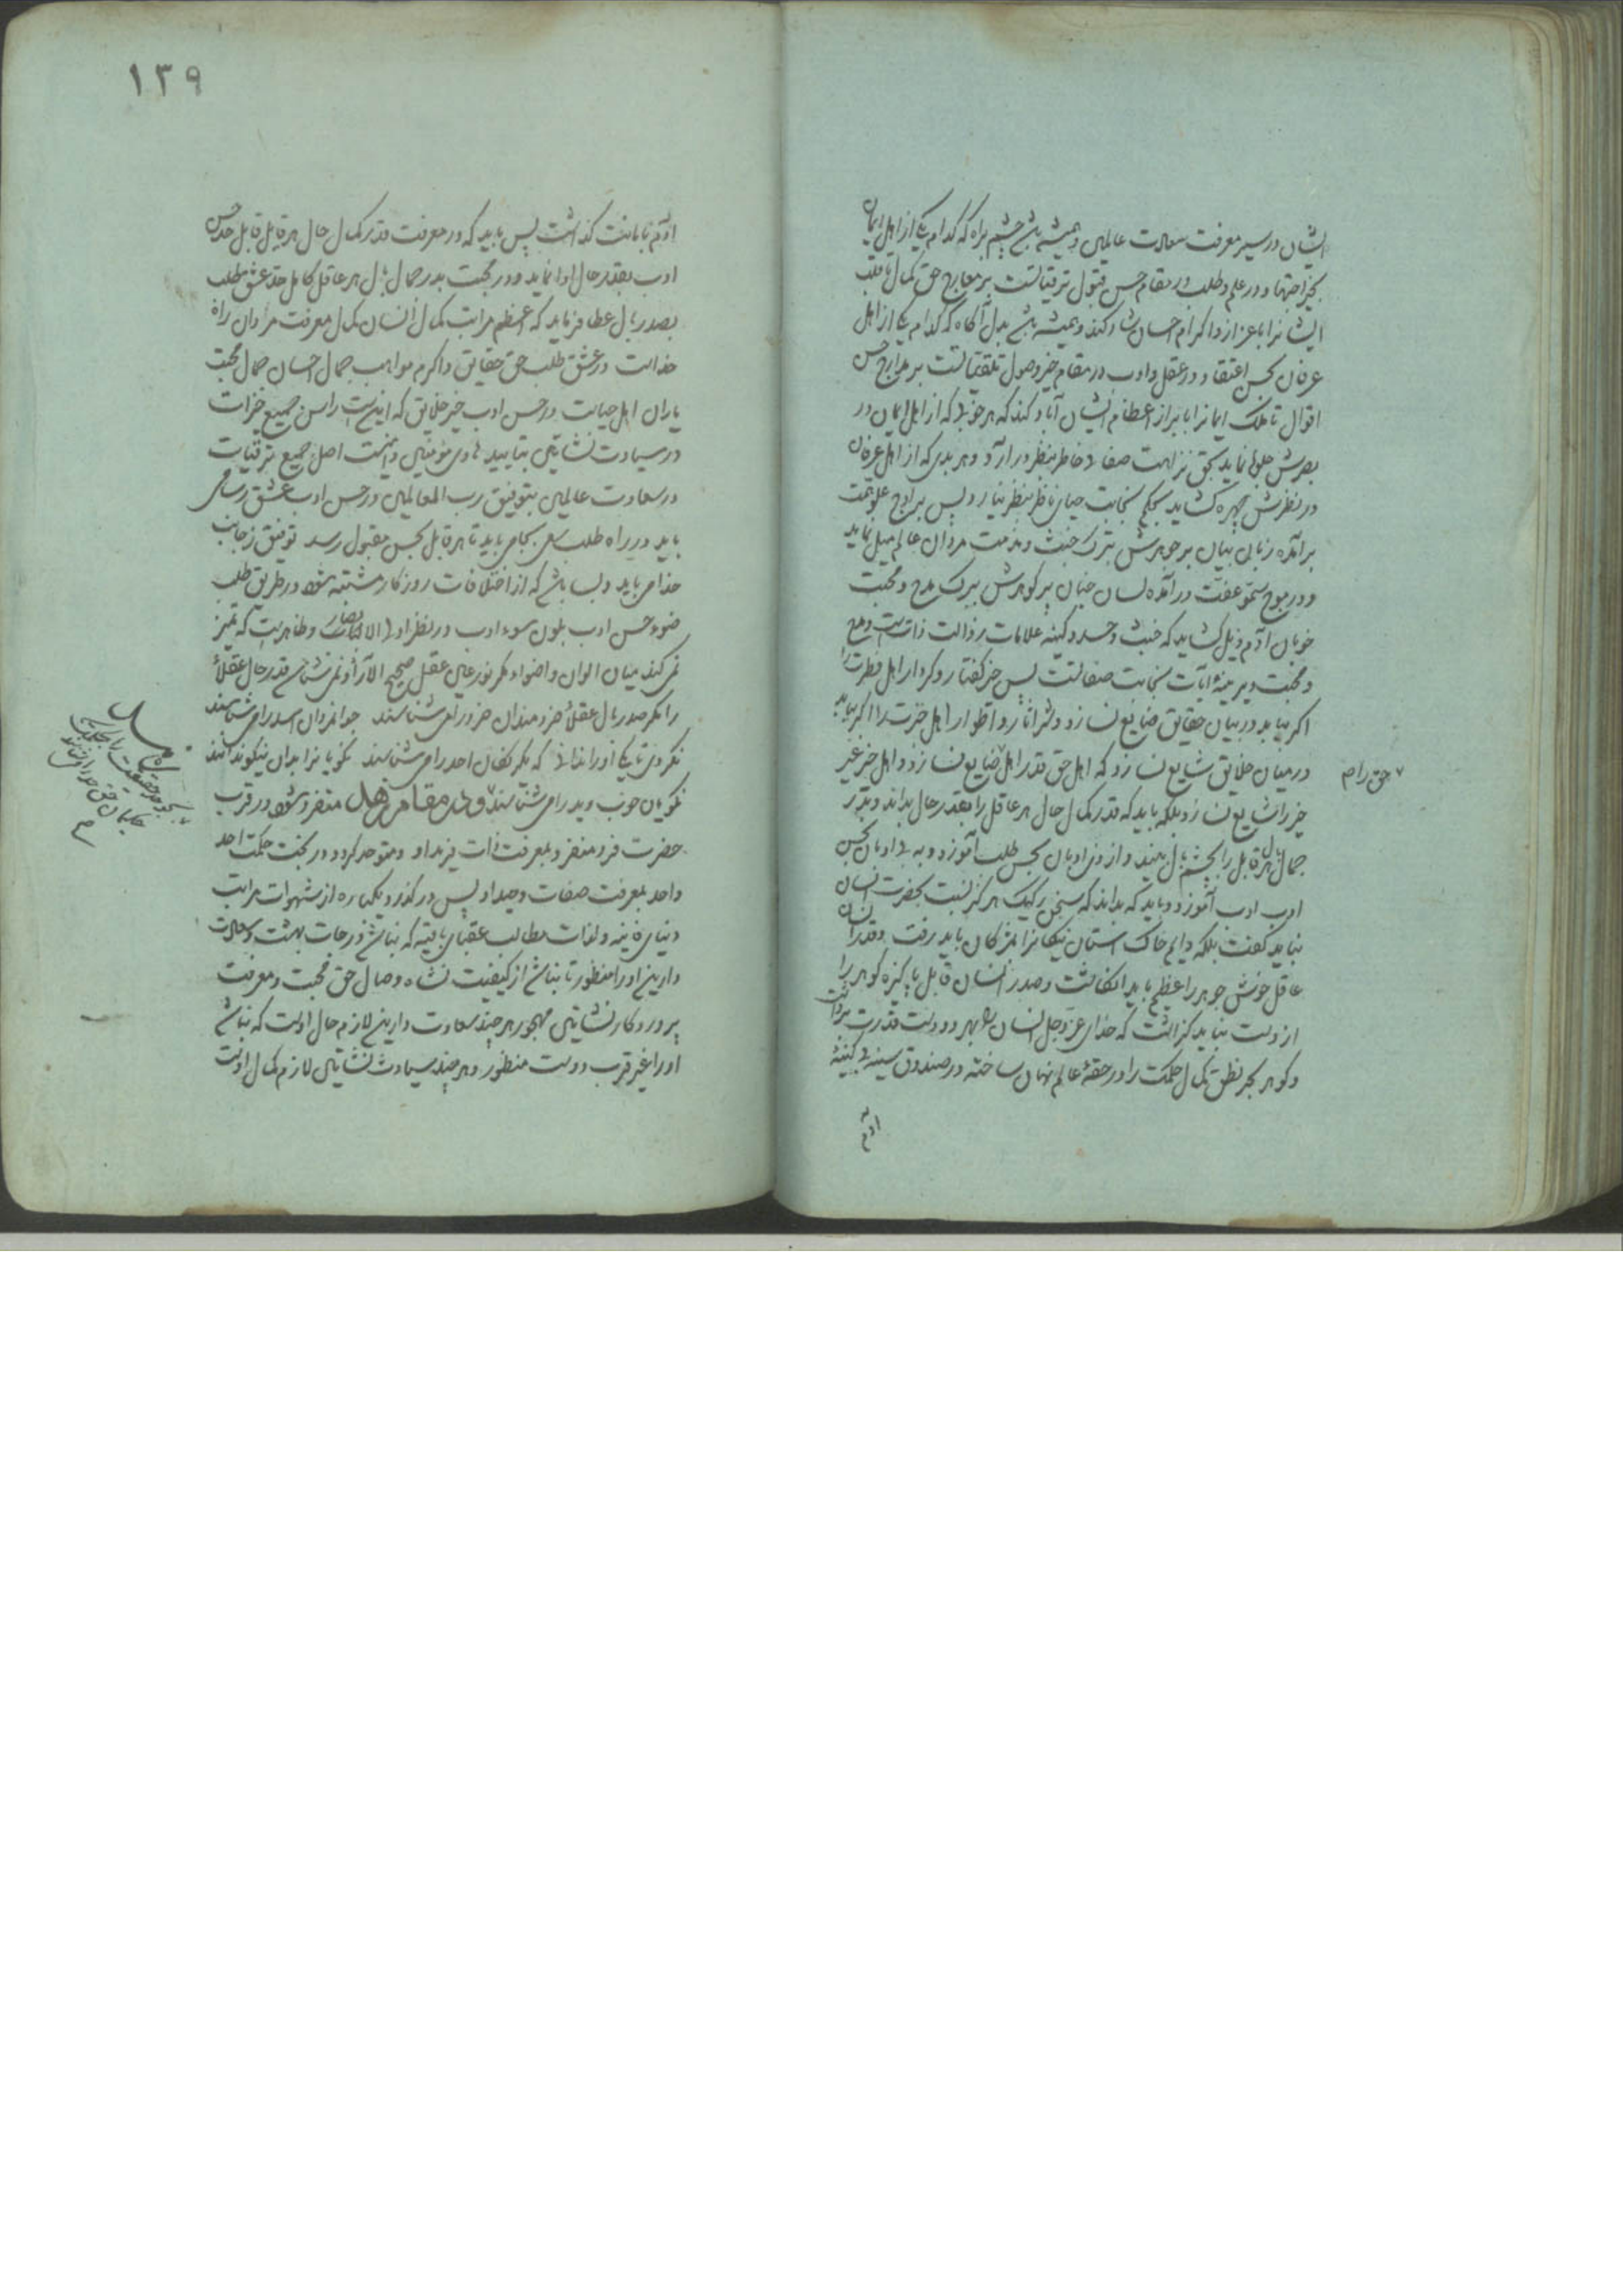 ایشان در سیر معرفت سعادت عالمین و همیشه باشد چشم براه که کدام یکی از اهل ایمان
بخیر اجتهاد و در علم و طلب در مقام حسن قبول ترقیاتست بر معارج حق کمال تا قلب
ایشانرا باعزاز و اکرام احسان شاد کند و همیشه باشد بدل آگاه که کدام یکی از اهل
عرفان بحسن اعتقاد و در عقل و ادب در مقام خیر وصول تلقیاتست بر مدارج حسن
اقوال تا ملک ایمانرا بابراز اعطام ایشان آباد کند که هر خوبی که از اهل ایمان در
بصرش جلوه نماید بحق نزاهت صفای خاطر بنظر در آرد و هر بدی که از اهل عرفان
در نظرش چهره گشاید بحکم نجابت حیای ناظر بنظر نیارد پس بر اوج علو همت
برآمده زبان بیان بر جوهرش بترک خبث و مذمت مردان عالم میل نماید
و در موج سمو عفت درآمده لسان جنان بر گوهرش ببرک مدح و محبت
خوبان آدم ذیل گشاید که خبث و حسد و کینه علامات رذالت ذاتست و مدح
و محبت و بر سینه آیات نجابت صفاتست پس خیر گفتار و کردار اهل فطرت را
اگر بیابد در بیان حقایق ضایع نسازد و شر آثار و اطوار اهل خبرت را اگر بیابد
در میان خلایق شایع نسازد که اهل حق قدر اهل ضایع نسازد و اهل خیر غیر
خیر را شایع نسازد بلکه باید که قدر کمال حال هر عاقل را بقدر حال بداند و بدر
جمال بال هر قابل را بچشم بال بیند و از وی ادبان بحسن طلب آموزد و به بی ادبان بحسن
ادب ادب آموزد و باید که بداند که سخن رکیک هرگز نسبت بحضرت انسان
نباید گفت بلکه دایم خاک آستان نیکانرا بمژگان باید رفت و قدر انسان
عاقل خوش جوهر را عظیم باید انگاشت و صدر انسان قابل پاکیزه گوهر را
از دست نباید گذاشت که خدای عز و جل انسان را بهر دو دست قدرت برداشت
و گوهر بحر نطق کمال حکمت را در حقه عالم نهان ساخته در صندوق سینه بی کینه
آدم
حق را م
۱۳۹
آدم بامانت گذاشت پس باید که در معرفت قدر کمال حال هر قابل قابل حد حسن
ادب بقدر حال ادا نماید و در محبت بدر جمال بال هر عاقل کامل حد عشق طلب
بصدر بال عطا فرماید که اعظم مراتب کمال انسان کمال معرفت مردان راه
خداست در عشق طلب حق حقایق و اکرم مواهب جمال احسان جمال محبت
یاران اهل حیاست در حسن ادب خیر خلایق که اینست راس جمیع خیرات
در سیادت نشاتین بتایید هادی مؤمنین و اینست اصل جمیع ترقیات
در سعادت عالمین بتوفیق رب العالمین در حسن ادب عشق رسای
باید در راه طلب سعی بجای باید تا هر قابل بحسن مقبول رسد توفیق ز جانب
خدا می باید و بسا باشد که از اختلافات روزگار مشتبه شود در طریق طلب
ضوء حسن ادب بلون سوء ادب در نظر اولی الابصار و ظاهر است که تمیز
نمی کند میان الوان و اضواء مگر نور عین عقل صحیح الآراء و نمی شناسد قدر حال عقلا
را مگر صدر بال عقلا خردمندان خرد را می شناسند جوانمردان اسد را می شناسند
نگردی تا یکی او را ندانی که یکرنگان احد را می شناسند نکویانرا بدان نیکو ندانند
نکویان خوب و بد را می شناسند و در مقام زهد متفرد شود در قرب
حضرت فرد متفرد بمعرفت ذات فرد او و متوحد گردد در تحت حکمت احد
واحد بمعرفت صفات وحید او پس درگذرد یکباره از شهوات مراتب
دنیای فانیه و لذات مطالب عقبای باقیه که نباشد درجات بهشت و سعادت
دارین او را منظور تا نباشد از کیفیت نشاه وصال حق محبت و معرفت
پروردگار نشاتین مهجور هر چند سعادت دارین لازم حال اوست که نباشد
او را غیر قرب دوست منظور و هر چند سیادت نشاتین لازم کمال اوست